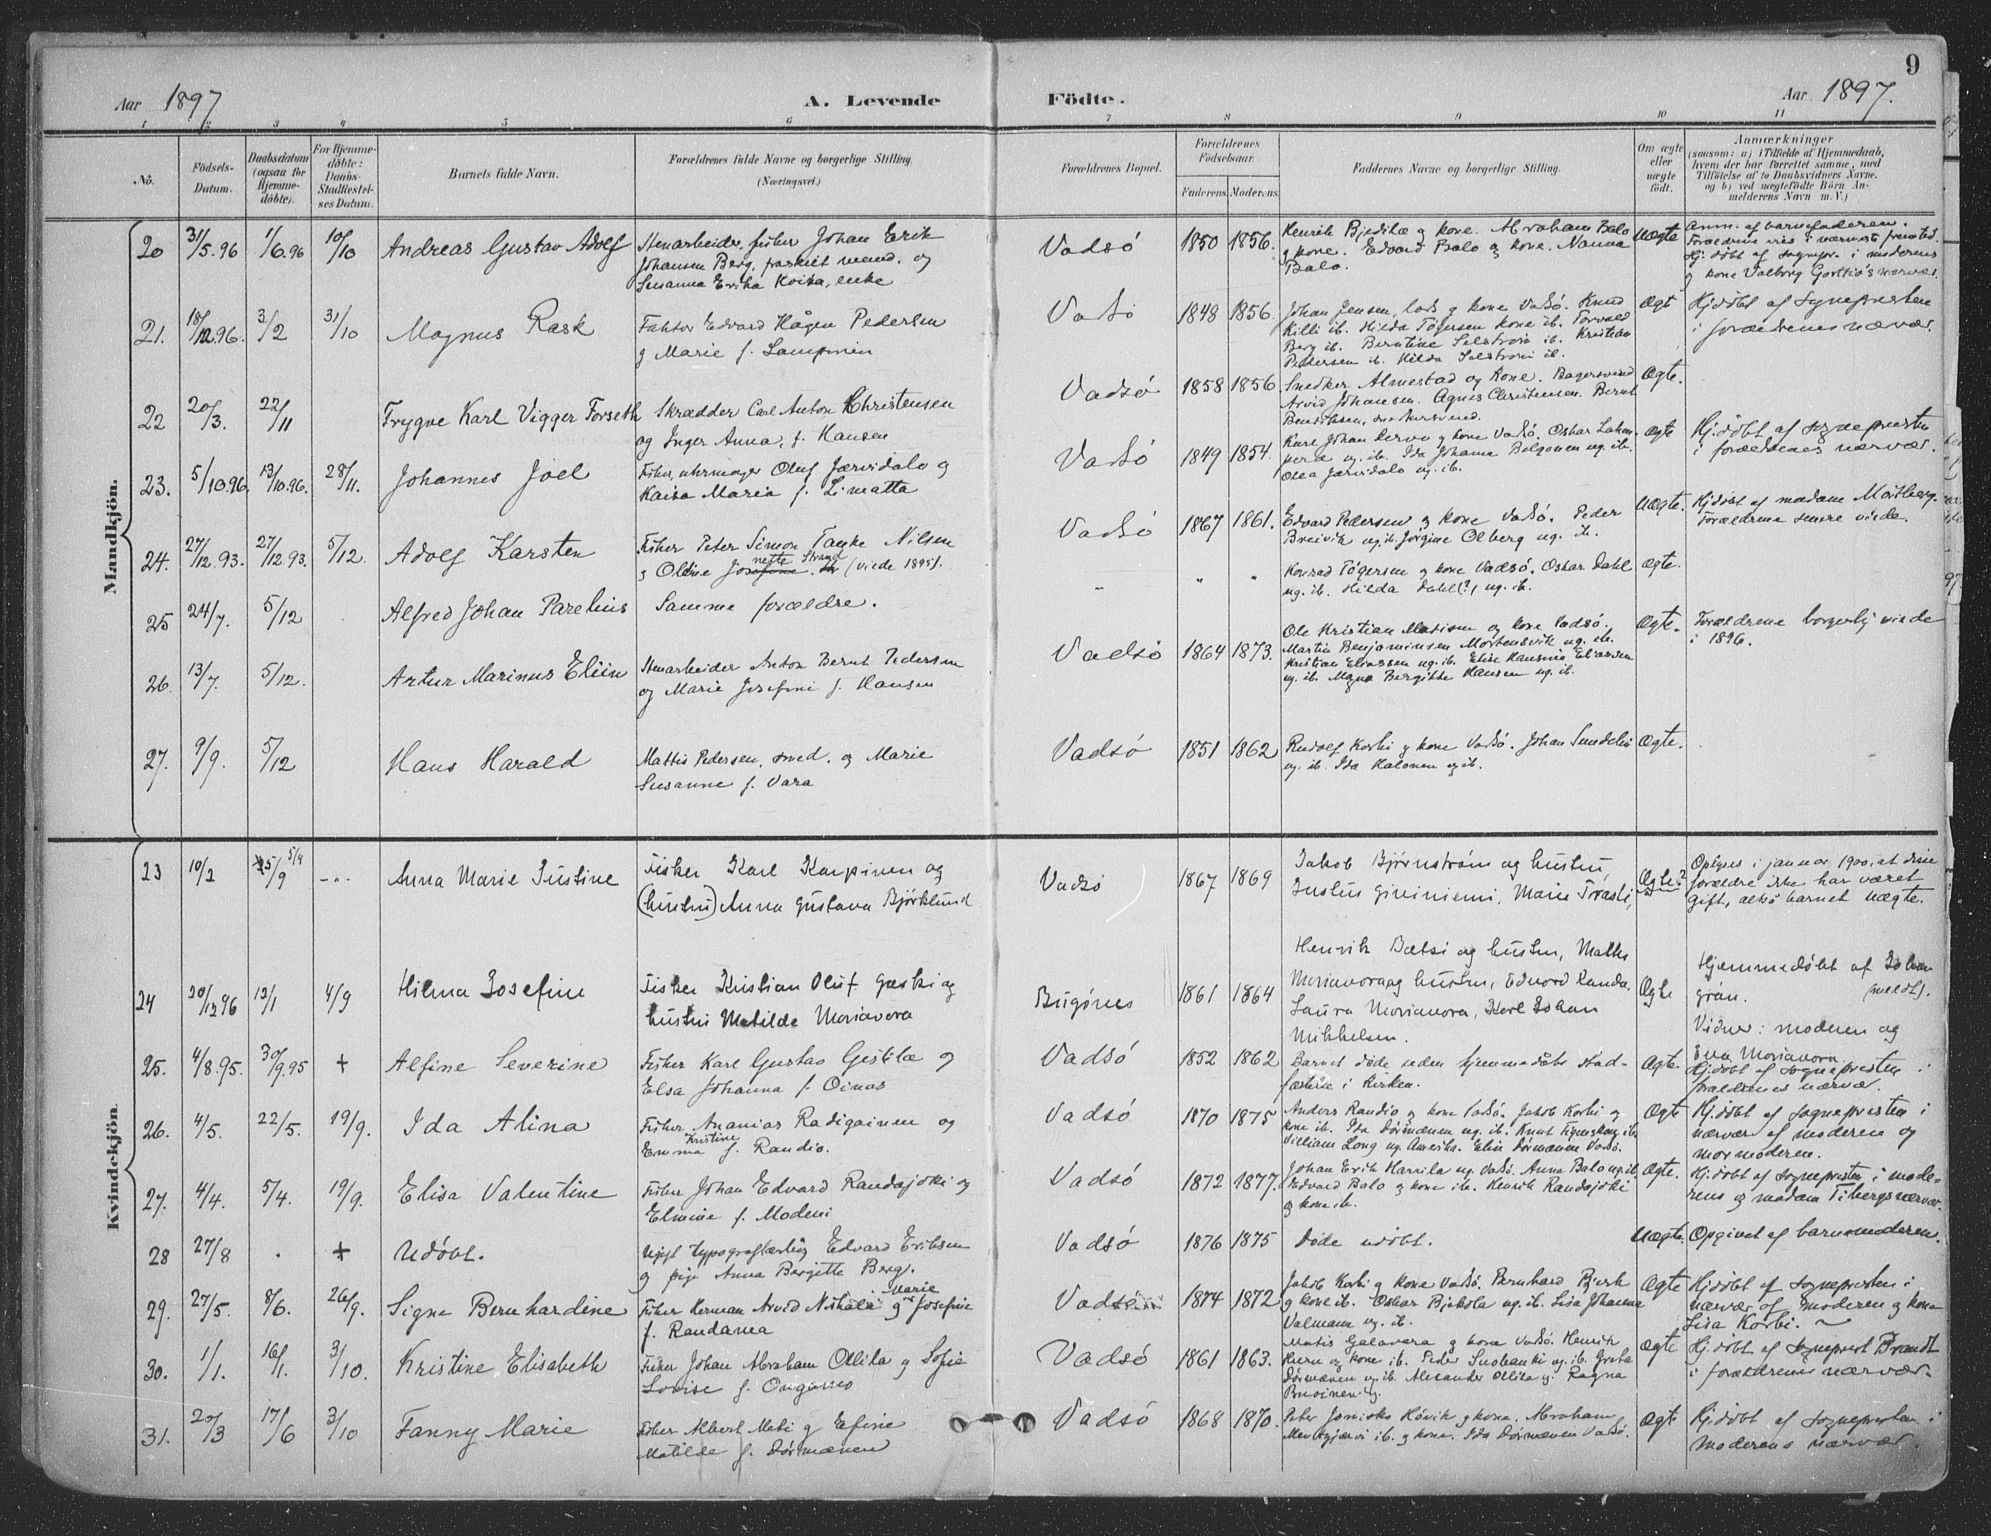 Aar 1897
A. Levende
Födte.
Aar 1897.
9
1 2 3 4 5 6 7 8 9 10 11
No.
Födsels-
Datum.
Daabsdatum
(ogsaa for
Hjemme-
döbte).
For Hjemme-
döbte:
Daabs-
Stadfæstel-
ses Datum.
Barnets fulde Navn.
Forældrenes fulde Navne og borgerlige Stilling.
(Næringsvei.)
Forældrenes Bopæl.
Forældrenes
Födselsaar.
Faderens. Moderens.
Faddernes Navne og borgerlige Stilling.
Om ægte
eller
uægte
födt.
Anmærkninger
(saasom: a) i Tilfælde af Hjemmedaab,
hvem der har forrettet samme, med
Tilföielse af to Daabsvidners Navne.
og b) ved uægtefödte Börn An-
melderens Navn m. V.)
Mandkjön.
20 31/5.96 1/6.96 10/10 Andreas Gustav Adolf
Johan Erik
Johansen Berg, fraskilt mand, og
Susanna Erika Koisa, enke
Vadsö 1850 1856.
Henrik Bjediλæ og kone. Abraham Balo
g kone. Edvard Balo g kone. Nanna
Balo.
Uægte
Anm. af barnefaderen.
21. 18/12.96. 3/2 31/10 Magnus Rask
Faktor Edvard Hågen Pedersen
g Marie f. Lampinen
Vadsö 1848 1856.
Johan Jensen, lods g kone Vadsö. Knud
Killi ib. Hilda Tögersen kone ib. Torvald
Berg ib. Berntine Selström ib. Kristian
Pedersen ib. Hilda Selström ib.
Ægt
Hj.döbt af sognepresten
i forældrenes nærvær.
22 20/3. 22/11 Trygve Karl Vigger Forseth
Skrædder Carl Anton Christensen
og Inger Anna, f. Hansen
Vadsö 1858 1856
Snedker Almestad og kone. Bagersvend
Arvid Johansen. Agnes Christensen. Bernt
Ægte.
23. 5/10.96. 13/10.96. 28/11. Johannes Joel
Fisker, uhrmager Oluf Jærvidalo g
Kaisa Maria f. Limatta
Vadsö 1849 1854.
Ægte
Hj.döbt af sognepresten
i forældrenes nærvær.
24. 27/12.93. 27/12.93 5/12 Adolf Karsten
Fisker Peter Simon Tanke Nilsen
(viede 1895).
Vadsö 1867 1861.
Edvard Pedersen g kone Vadsö. Peder
Breivik ug. ib. Jörgine Olberg ug. ib.
Uægte.
Hj.döbt af madam Mörtberg.
Forældrene senere viede.
25 24/7. 5/12 Alfred Johan Parelius
Samme forældre.
" " "
Konrad Tögersen g kone Vadsö. Oskar Dahl
ug. ib. Hilda Dahl(?), ug. ib.
Ægte.
26. 13/7. 5/12. Artur Marinus Eliin
Anton Bernt Pedersen
og Marie Josefine f. Hansen
Vadsö 1864 1873.
Ole Kristian Matisen og kone Vadsö.
Martin Benjaminsen Mortensvik ug. ib.
Kristian Eliassen ug. ib. Elise Hansine Eliassen
ug. ib. Magna Bergitte Hansen ug. ib.
Ægte.
Forældrene borgerlig viede
i 1896.
27. 9/9. 5/12 Hans Harald
Mattis Pedersen, smed. og Marie
Susanne f. Vara
Vadsö 1851 1862
Rudolf Korbi g kone Vadsö. Johan Sundelin
ug. ib. Ida Halonen ug ib.
Ægte.
Kvindekjön
23 10/2 5/9 5/9 -..- Anna Marie Justine
Fisker Karl Karpinen og
(hustru) Anna Gustava Björklund
Vadsö 1867 1869
Jakob Björnström og hustru,
Justus Giviniemi, Marie Trasti,
Ægte?
Oplyses i januar 1900, at disse
forældre ikke har været
gift, altså barnet uægte.
24 20/12 96 12/1 4/9 Hilma Josefine
Fisker Kristian Oluf Gæski og
hustru Matilde Morianora
Bugönes 1861 1864
Henrik Bætsi og hustru, Mathis
Morianora og hustru, Edvard Randa.
Laura Morianora, Karl Johan
Mikkelsen.
Ægte
Hjemmedöbt af Johan
grön. (meldt).
Vidner: moderen og
Eva Morianora.
25. 4/8.95. 30/9.95 + Alfine Severine
Fisker Karl Gustav Gestilæ og
Elsa Johanna f. Oinas
Vadsö 1852 1862
Barnet döde uden hjemmedåbs stad-
fæstelse i kirken.
Ægte.
Hj.döbt af sognepresten i
forældrenes nærvær.
26. 4/5. 22/5. 19/9. Ida Alina
Fisker Ananias Radigainen og
Emma Kristine f. Randio.
Vadsö 1870 1875
Anders Randio g kone Vadsö. Jakob Korbi g
kone ib. Ida Dörmænen ug. ib.
William Long ug. Amerika. Elise Dörmænen Vadsö.
Ægte
Hj.döbt af sognepresten i
nærvær af moderen og
mormoderen.
27. 4/4. 5/4. 19/9. Elisa Valentine
Fisker Johan Edvard Randajoki og
Elmine f. Modeni
Vadsö 1872 1877.
Johan Erik Harrila ug. Vadsö. Anna Balo ug. ib.
Edvard Balo g kone ib. Henrik Randajoki
g kone ib.
Ægte.
Hj.döbt af sognepresten i mode-
rens og madam Tibergs nærvær.
28 27/8 . + Udöbt.
Ugift typograflærling Edvard Eriksen
g pige Anna Bergitte Berg.
Vadsö 1876 1875
Döde udöbt.
Uægte.
Opgivet af barnemoderen.
29. 27/5. 8/6. 26/9. Signe Bernhardine
Fisker Herman Arvid Niskala g Marie Josefine
f. Randama
Vadsö 1874 1872
Jakob Korbi g kone Vadsö. Bernhard Bjerk
g kone ib. Oskar Bjekola ug. ib. Lisa Johanne
Valmann ug. ib.
Ægte
Hj.döbt af sognepresten i
nærvær af moderen g kone
Lisa Korbi.
30. 1/1. 16/1. 3/10. Kristine Elisabeth
Fisker Johan Abraham Ollila g Sofie
Lovise f. Ongamo
Vadsö 1861 1863.
Matis Galavara g kone Vadsö. Henrik
g kone ib. Peder Suobanki ug. ib. Greta
Dörmænen ug. ib. Alexander Ollila g. Ragna
ægte
Hj.döbt af sogneprest Brandt
i forældrenes nærvær.
31. 20/3 17/6 3/10 Fanny Marie
Fisker Albert Mati g Efine
Matilde f. Dörmænen
Vadsö 1868 1870.
Peter Janisko Hövik g kone. Abraham
ib. g kone. Ida Dörmænen Vadsö.
Ægte
Hj.döbt af sognepresten i
moderens nærvær.